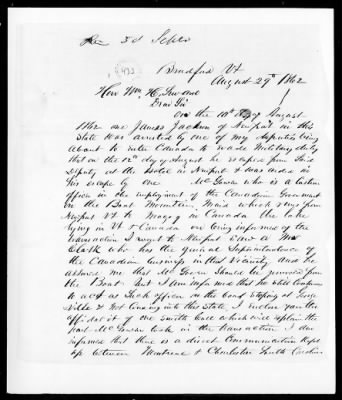 3d Septr
(473)
Bradford Vt
August 29th 1862
Hon Wm H. Seward
Dear Sir
On the 10th day of August
1862 one James Jackson of Newport in this
State was arrested by one of my deputies being
about to enter Canada to evade Military duty
that on the 12th day of August he escaped from Said
Deputy at the Hotel in Newport & was aided in
this escape by one Mc Gowan who is a Custom
officer in the employment of the Canadian Government
on the Boat Mountain Maid which runs from
Newport Vt to Magog in Canada the lake
lying in Vt & Canada on being informed of the
transaction I went to Newport & saw a Mr
Clark who has the general Superintendence of
the Canadian business in that Vicinity and he
assured me that Mc Gowan Should be removed from
the Boat. But I am informed that he still Continues
to act as Such officer on the boat Stopping at George
Ville & Not coming into this State I enclose you the
affidavit of one Smith Case which will explain the
part Mc Gowan took in the transaction I am
informed that there is a direct Communication kept
up between Montreal & Charleston South Carolina